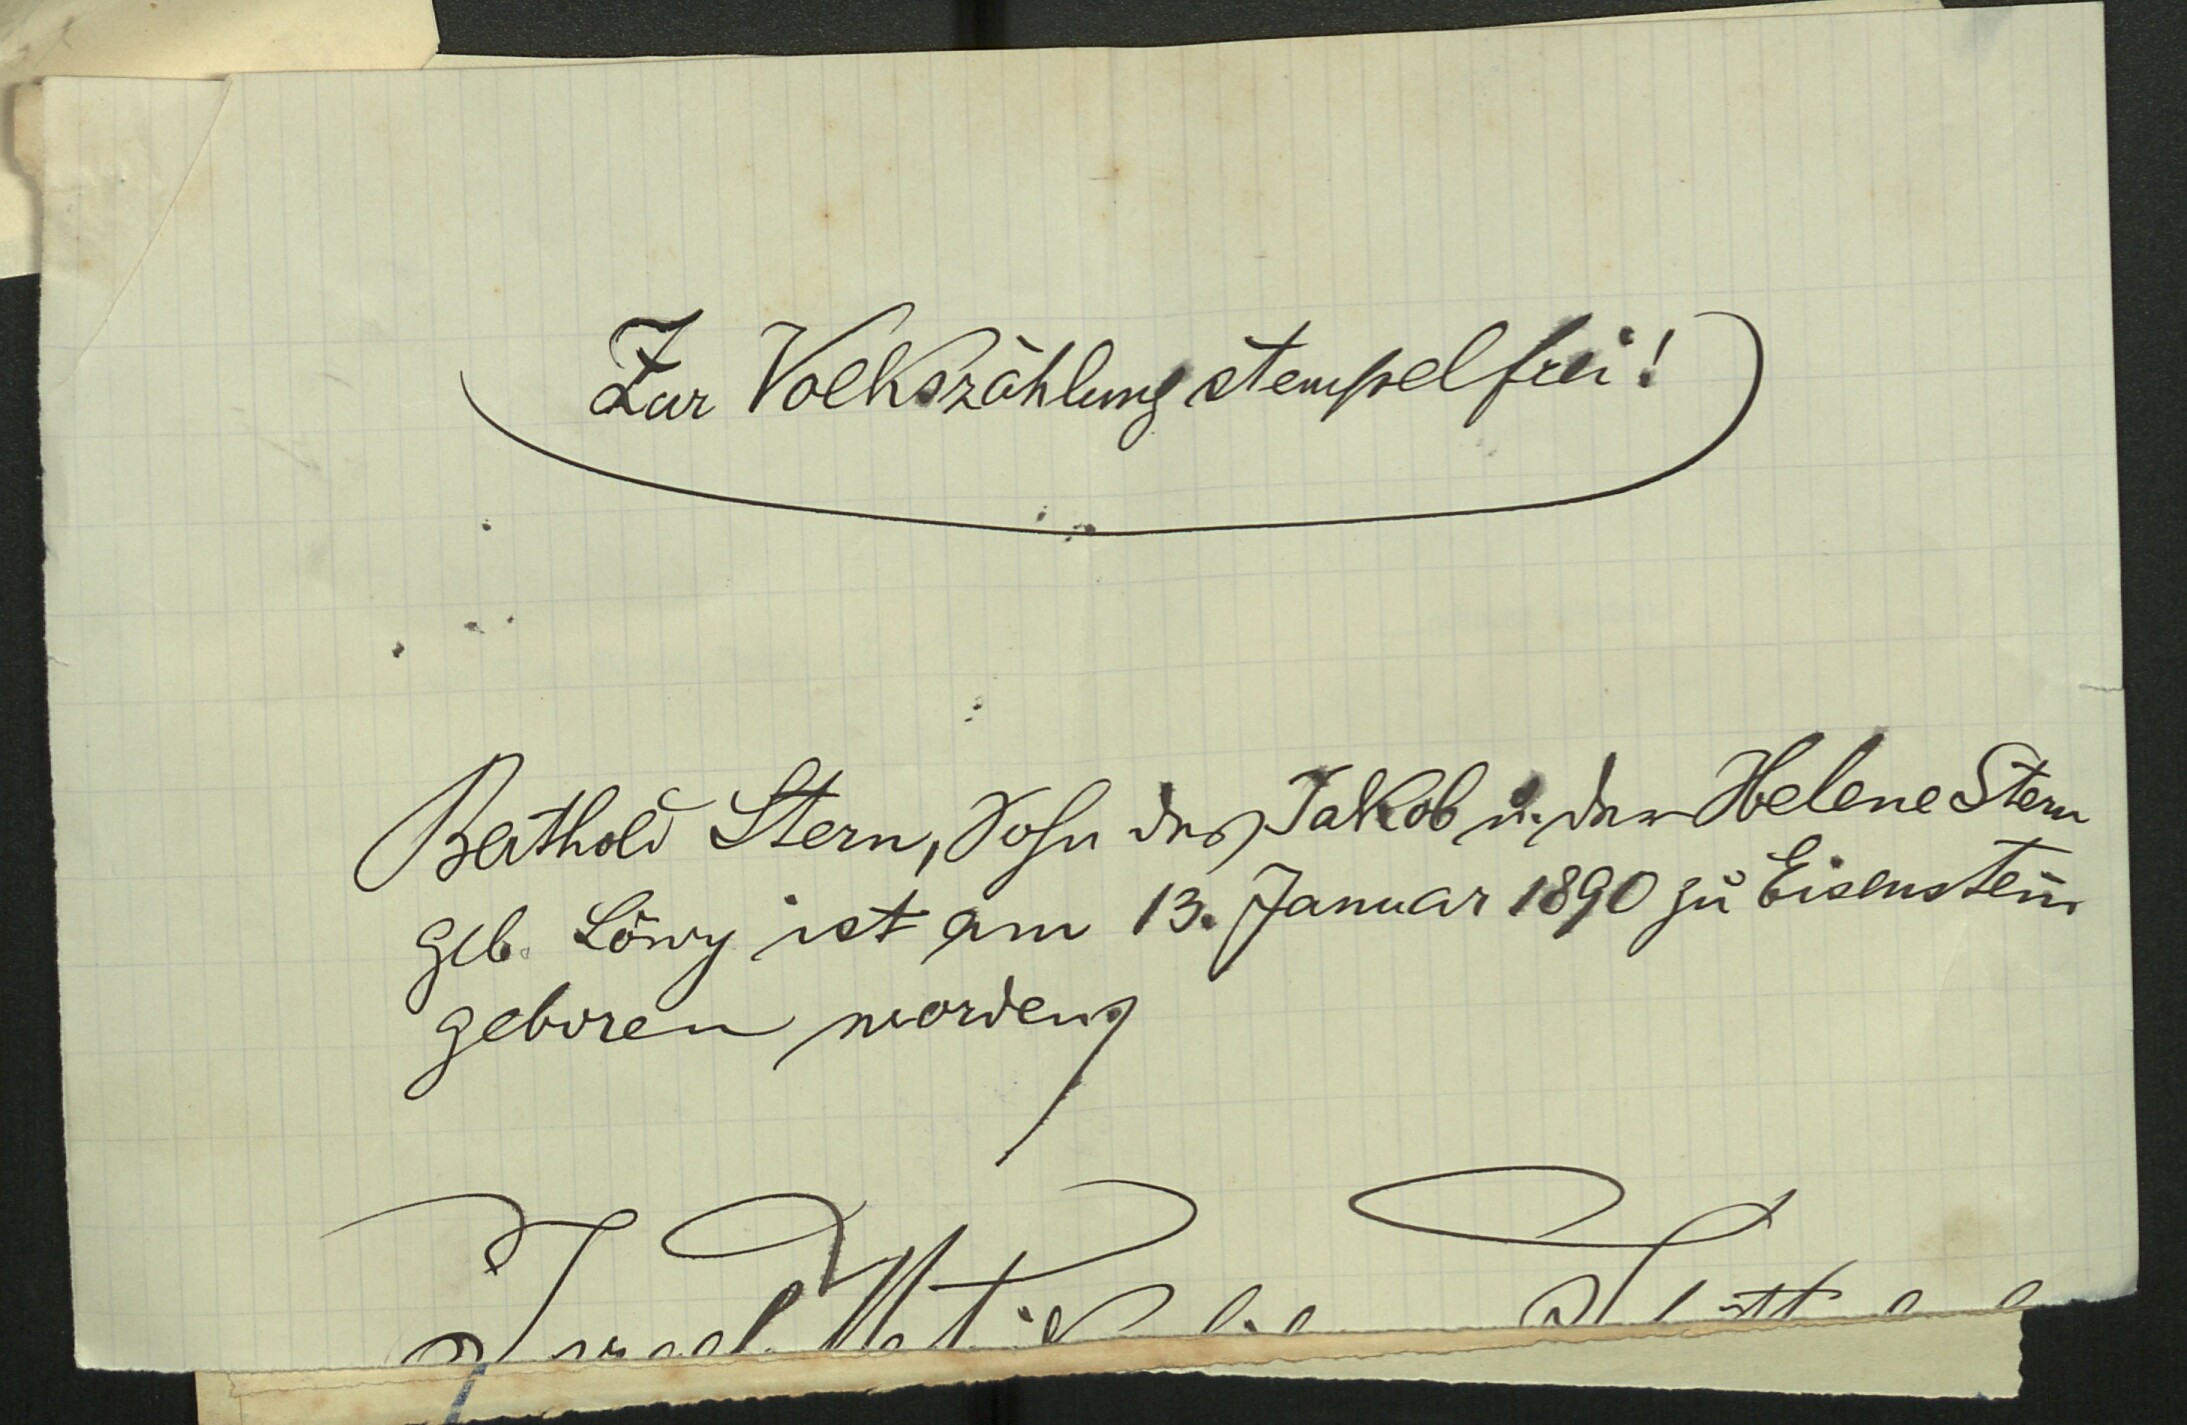 Zur Volkszählung stempelfrei!
Berthold Stern, Sohn des Jakob u. der Helene Stern
geb. Löwy ist am 13. Januar 1890 zu Eisenstein
geboren worden